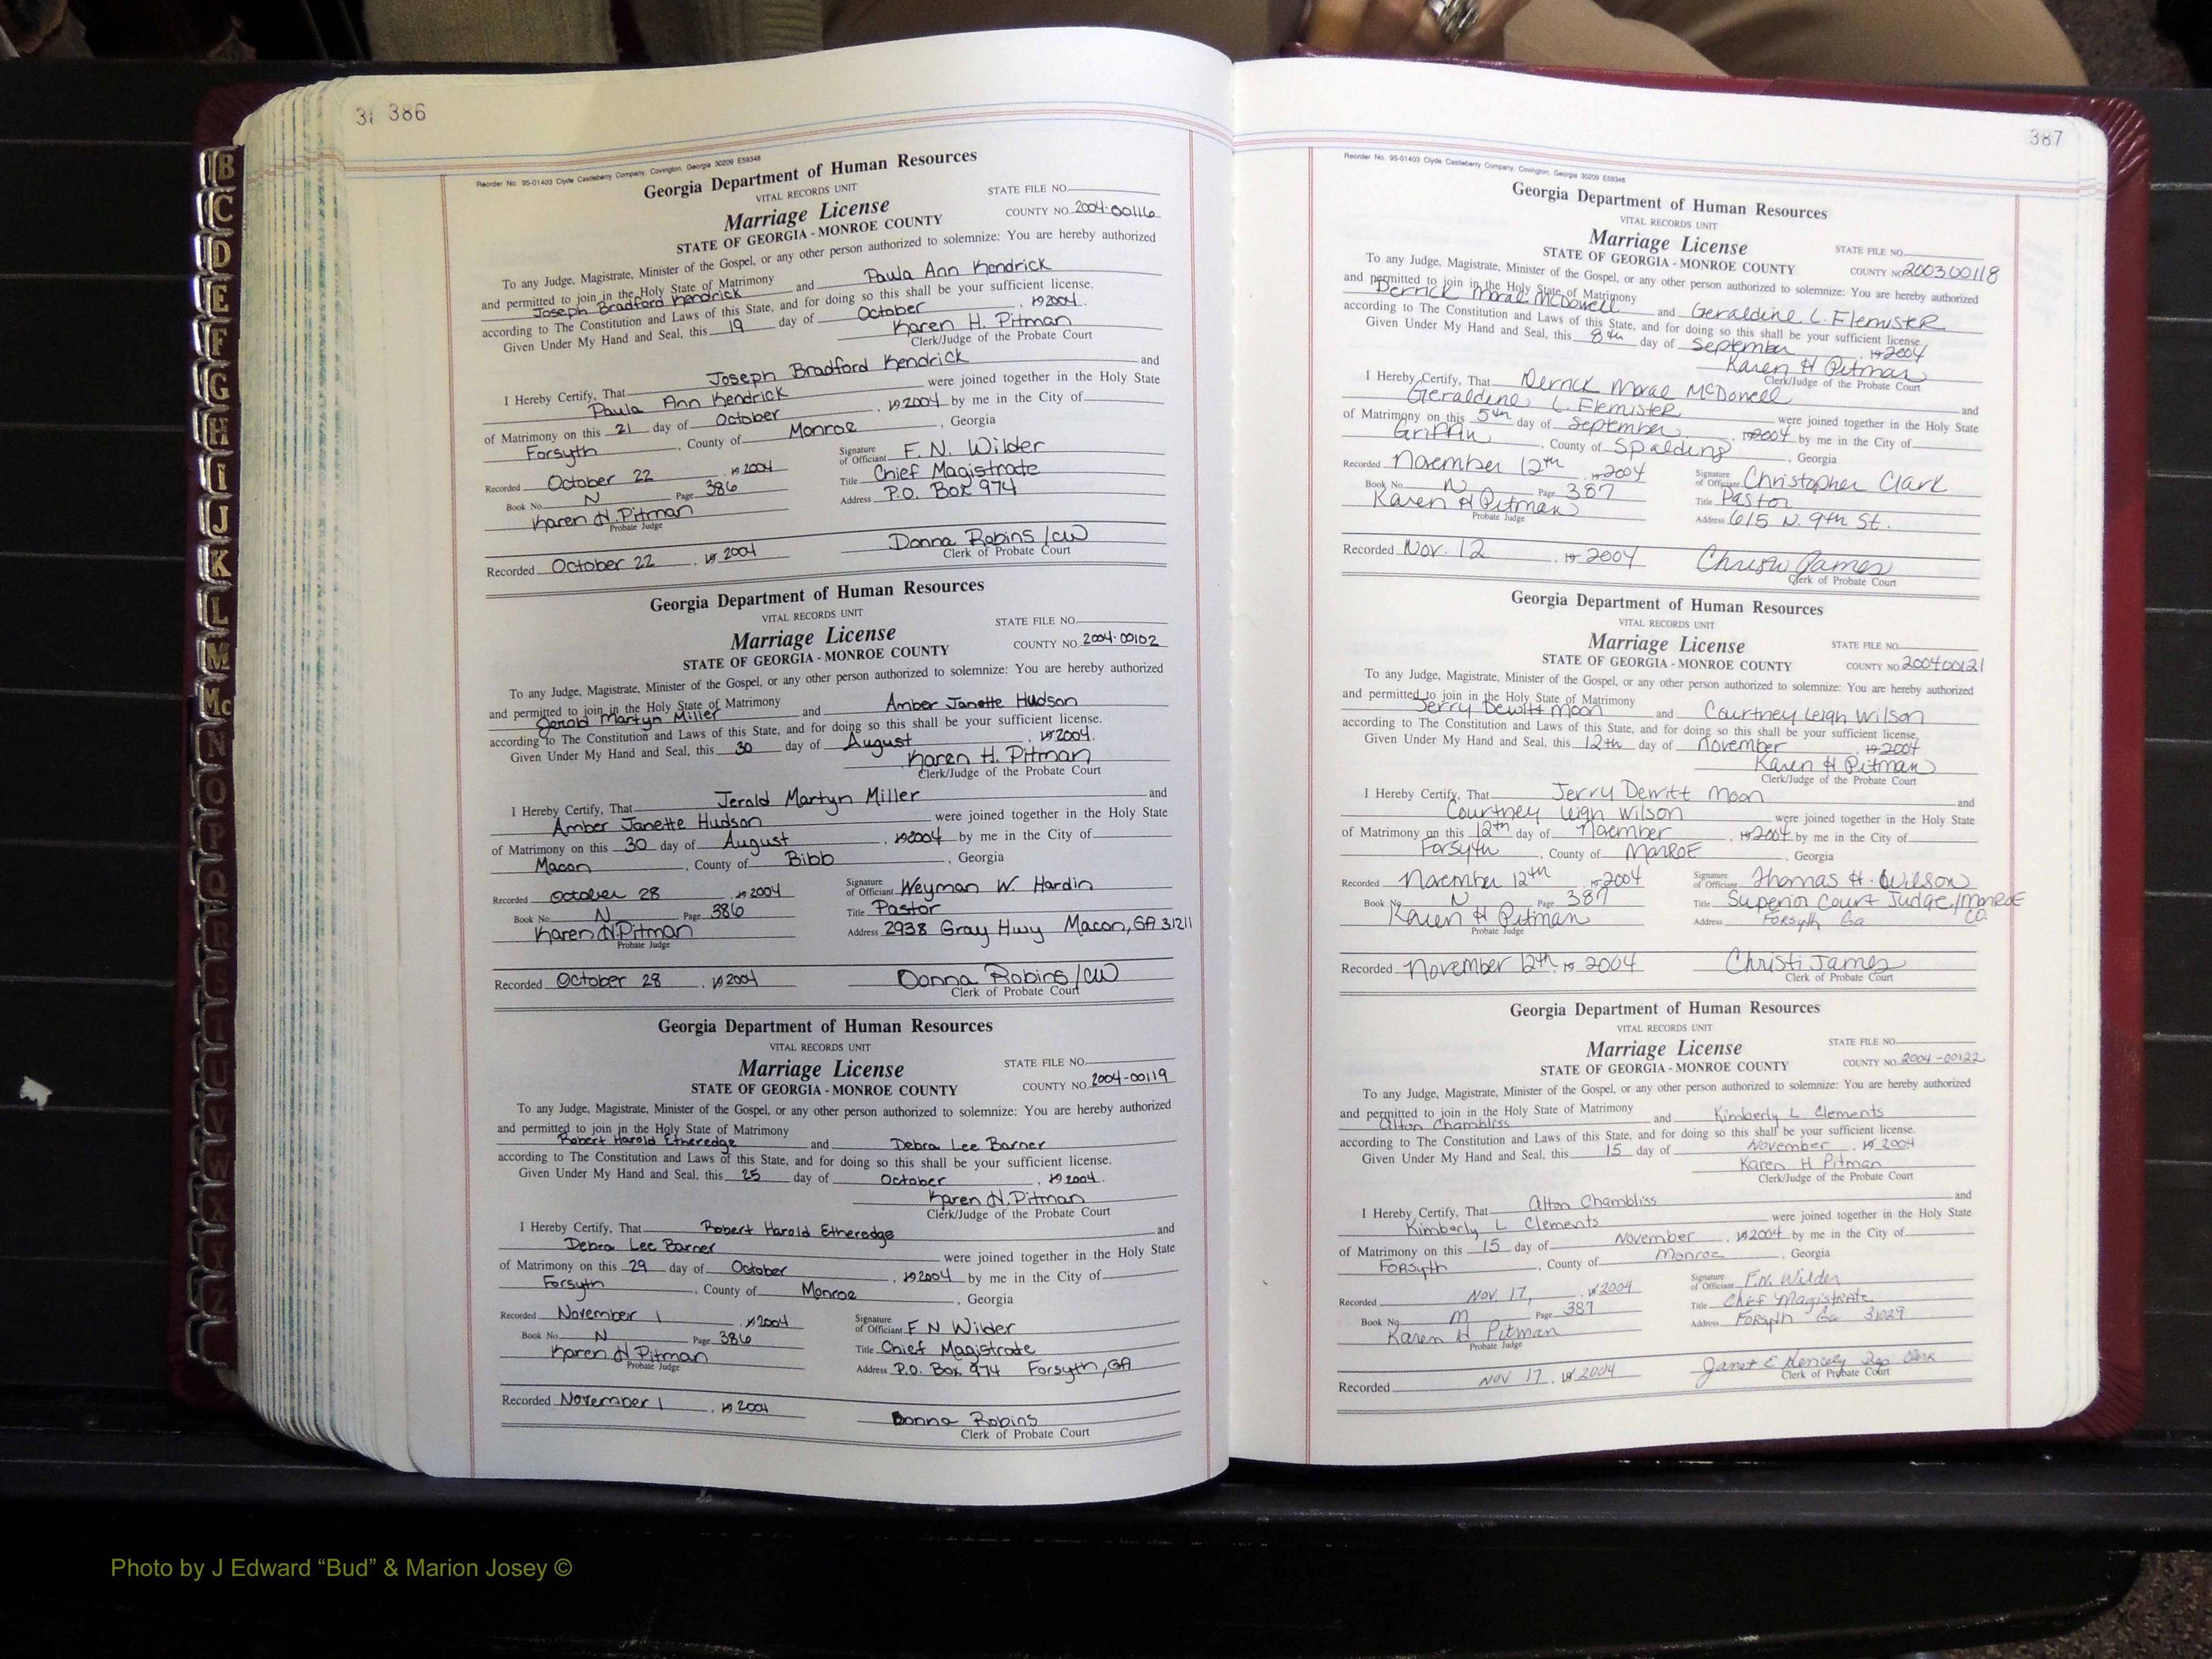 386
Reorder No. 95-01403 Clyde Castleberry Company, Covington, Georgia 30209 E59348
Georgia Department of Human Resources
VITAL RECORDS UNIT
STATE FILE NO.
Marriage License
COUNTY NO. 2004-00116
STATE OF GEORGIA - MONROE COUNTY
To any Judge, Magistrate, Minister of the Gospel, or any other person authorized to solemnize: You are hereby authorized
and permitted to join in the Holy State of Matrimony
Joseph Bradford Kendrick and Paula Ann Kendrick
according to The Constitution and Laws of this State, and for doing so this shall be your sufficient license.
Given Under My Hand and Seal, this 19 day of October, 19 2004.
Karen H. Pitman
Clerk/Judge of the Probate Court
I Hereby Certify, That Joseph Bradford Kendrick and
Paula Ann Kendrick were joined together in the Holy State
of Matrimony on this 21 day of October, 19 2004 by me in the City of
Forsyth, County of Monroe, Georgia
Recorded October 22, 19 2004 Signature of Officiant F. N. Wilder
Book No. N Page 386 Title Chief Magistrate
Karen H. Pitman Address P.O. Box 974
Probate Judge
Recorded October 22, 19 2004 Donna Robins/CW
Clerk of Probate Court
Georgia Department of Human Resources
VITAL RECORDS UNIT
STATE FILE NO.
Marriage License
COUNTY NO. 2004-00102
STATE OF GEORGIA - MONROE COUNTY
To any Judge, Magistrate, Minister of the Gospel, or any other person authorized to solemnize: You are hereby authorized
and permitted to join in the Holy State of Matrimony
Jerold Martyn Miller and Amber Janette Hudson
according to The Constitution and Laws of this State, and for doing so this shall be your sufficient license.
Given Under My Hand and Seal, this 30 day of August, 19 2004.
Karen H. Pitman
Clerk/Judge of the Probate Court
I Hereby Certify, That Jerold Martyn Miller and
Amber Janette Hudson were joined together in the Holy State
of Matrimony on this 30 day of August, 19 2004 by me in the City of
Macon, County of Bibb, Georgia
Recorded October 28, 19 2004 Signature of Officiant Weyman W. Hardin
Book No. N Page 386 Title Pastor
Karen H. Pitman Address 2938 Gray Hwy Macon, GA 31211
Probate Judge
Recorded October 28, 19 2004 Donna Robins/CW
Clerk of Probate Court
Georgia Department of Human Resources
VITAL RECORDS UNIT
STATE FILE NO.
Marriage License
COUNTY NO. 2004-00119
STATE OF GEORGIA - MONROE COUNTY
To any Judge, Magistrate, Minister of the Gospel, or any other person authorized to solemnize: You are hereby authorized
and permitted to join in the Holy State of Matrimony
Robert Harold Etheredge and Debra Lee Barner
according to The Constitution and Laws of this State, and for doing so this shall be your sufficient license.
Given Under My Hand and Seal, this 25 day of October, 19 2004.
Karen H. Pitman
Clerk/Judge of the Probate Court
I Hereby Certify, That Robert Harold Etheredge and
Debra Lee Barner were joined together in the Holy State
of Matrimony on this 29 day of October, 19 2004 by me in the City of
Forsyth, County of Monroe, Georgia
Recorded November 1, 19 2004 Signature of Officiant F N Wilder
Book No. N Page 386 Title Chief Magistrate
Karen H Pitman Address P.O. Box 974 Forsyth, GA
Probate Judge
Recorded November 1, 19 2004 Donna Robins
Clerk of Probate Court
387
Reorder No. 95-01403 Clyde Castleberry Company, Covington, Georgia 30209 E59348
Georgia Department of Human Resources
VITAL RECORDS UNIT
Marriage License
STATE FILE NO.
STATE OF GEORGIA - MONROE COUNTY
COUNTY NO. 200300118
To any Judge, Magistrate, Minister of the Gospel, or any other person authorized to solemnize: You are hereby authorized
and permitted to join in the Holy State of Matrimony
Derrick Moral McDowell and Geraldine L. Flemister
according to The Constitution and Laws of this State, and for doing so this shall be your sufficient license.
Given Under My Hand and Seal, this 8th day of September, 19 2004
Karen H Pitman
Clerk/Judge of the Probate Court
I Hereby Certify, That Derrick Moral McDowell and
Geraldine L. Flemister were joined together in the Holy State
of Matrimony on this 5th day of September, 19 2004 by me in the City of
Griffin, County of Spalding, Georgia
Recorded November 12th, 19 2004 Signature of Officiant Christopher Clark
Book No. N Page 387 Title Pastor
Karen H Pitman Address 615 N. 9th St.
Probate Judge
Recorded Nov. 12, 19 2004 James
Clerk of Probate Court
Georgia Department of Human Resources
VITAL RECORDS UNIT
Marriage License
STATE FILE NO.
STATE OF GEORGIA - MONROE COUNTY
COUNTY NO. 200400121
To any Judge, Magistrate, Minister of the Gospel, or any other person authorized to solemnize: You are hereby authorized
and permitted to join in the Holy State of Matrimony
Jerry Dewitt Moon and Courtney Leigh Wilson
according to The Constitution and Laws of this State, and for doing so this shall be your sufficient license.
Given Under My Hand and Seal, this 12th day of November, 19 2004
Karen H Pitman
Clerk/Judge of the Probate Court
I Hereby Certify, That Jerry Dewitt Moon and
Courtney Leigh Wilson were joined together in the Holy State
of Matrimony on this 12th day of November, 19 2004 by me in the City of
Forsyth, County of Monroe, Georgia
Recorded November 12th, 19 2004 Signature of Officiant Thomas H. Wilson
Book No. N Page 387 Title Superior Court Judge/Monroe Co.
Karen H Pitman Address Forsyth Ga
Probate Judge
Recorded November 12th, 19 2004 Christi James
Clerk of Probate Court
Georgia Department of Human Resources
VITAL RECORDS UNIT
Marriage License
STATE FILE NO.
STATE OF GEORGIA - MONROE COUNTY
COUNTY NO. 2004-00122
To any Judge, Magistrate, Minister of the Gospel, or any other person authorized to solemnize: You are hereby authorized
and permitted to join in the Holy State of Matrimony
Alton Chambliss and Kimberly L Clements
according to The Constitution and Laws of this State, and for doing so this shall be your sufficient license.
Given Under My Hand and Seal, this 15 day of November, 19 2004
Karen H Pitman
Clerk/Judge of the Probate Court
I Hereby Certify, That Alton Chambliss and
Kimberly L Clements were joined together in the Holy State
of Matrimony on this 15 day of November, 19 2004 by me in the City of
Forsyth, County of Monroe, Georgia
Recorded Nov. 17, 19 2004 Signature of Officiant F.N. Wilder
Book No. M Page 387 Title Chef Magistrate
Karen H Pitman Address Forsyth Ga 31029
Probate Judge
Recorded Nov 17, 19 2004 Janet E Dep Clerk
Clerk of Probate Court
B
C
D
E
F
G
H
I
J
K
L
M
Mc
N
O
P
Q
R
S
T
U
V
W
X
Y
Z
Photo by J Edward “Bud” & Marion Josey ©